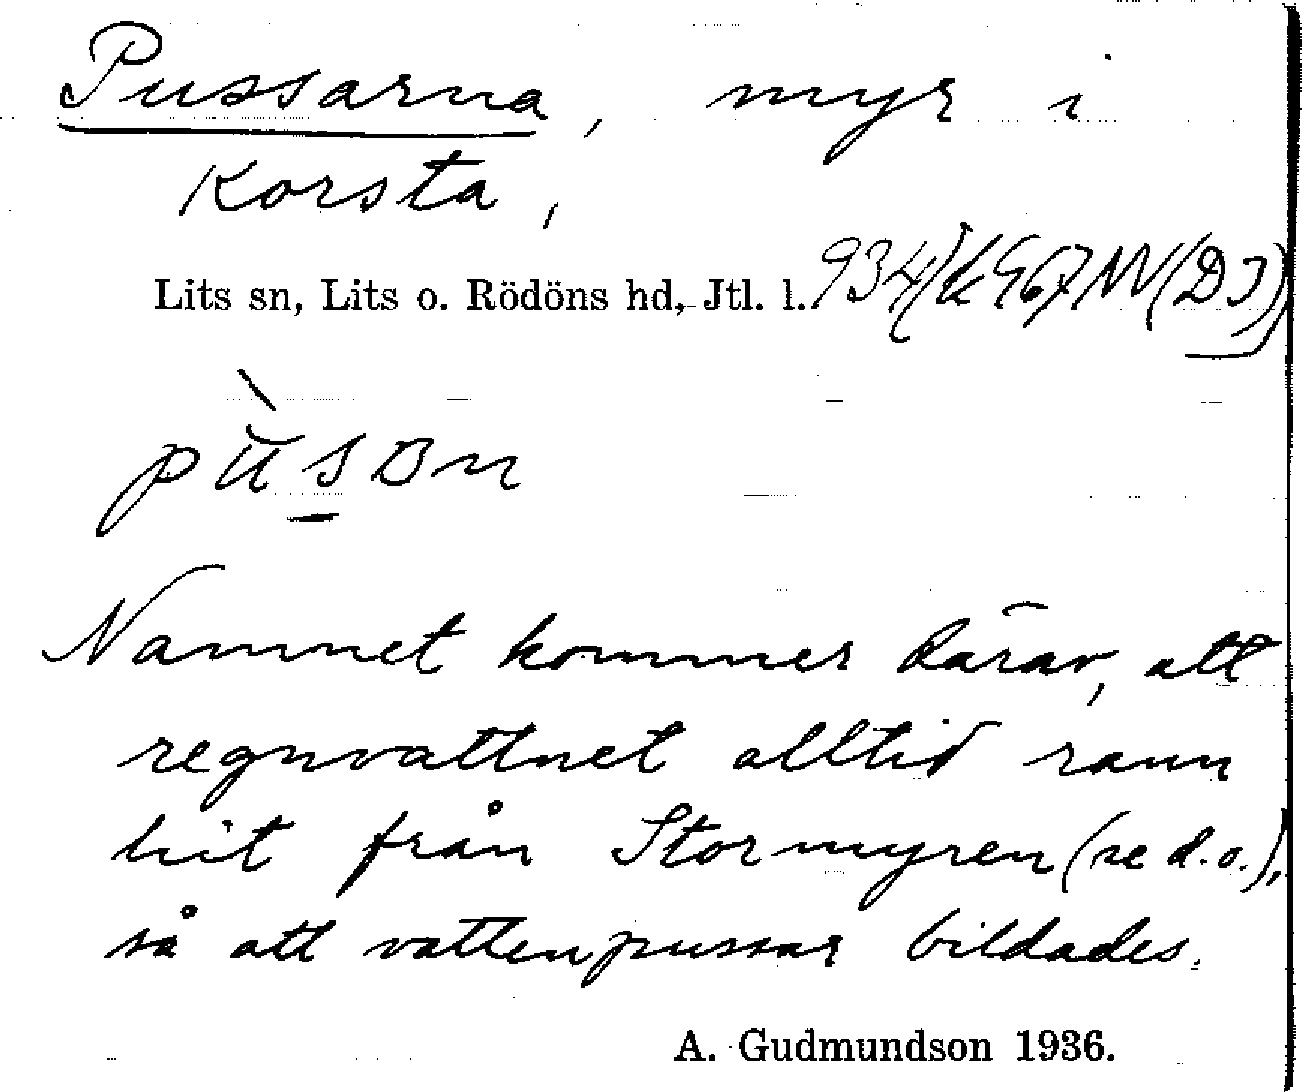 Pussarna, myr i
Korsta,
Lits sn, Lits o. Rödöns hd, Jtl. l.
Namnet kommer därav, att
regnvattnet alltid rann
hit från Stormyren (se d.o.),
så att vattenpussar bildades.
A. Gudmundson 1936.